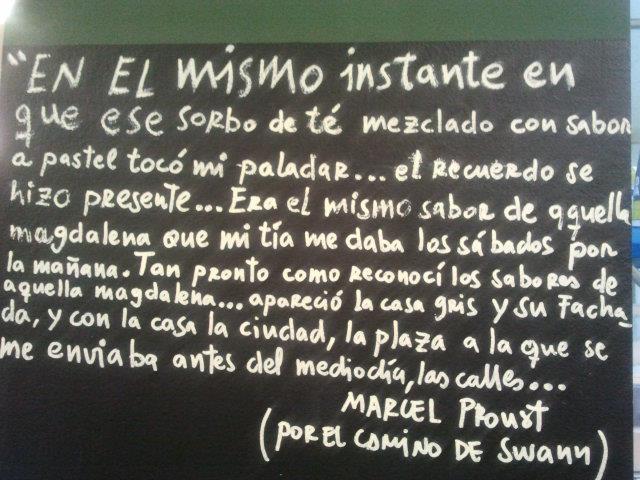 "EN EL MISMO instante en
que ese sorbo de té mezclado con sabor
a pastel tocó mi paladar... el recuerdo se
hizo presente... Era el mismo sabor de aquella
magdalena que mi tía me daba los sábados por
la mañana. Tan pronto como reconocí los sabores de
aquella magdalena... apareció la casa gris y su facha_
da, y con la casa la ciudad, la plaza a la que se
me enviaba antes del mediodía, las calles...
MARCEL PROUST
(POR EL CAMINO DE Swann)